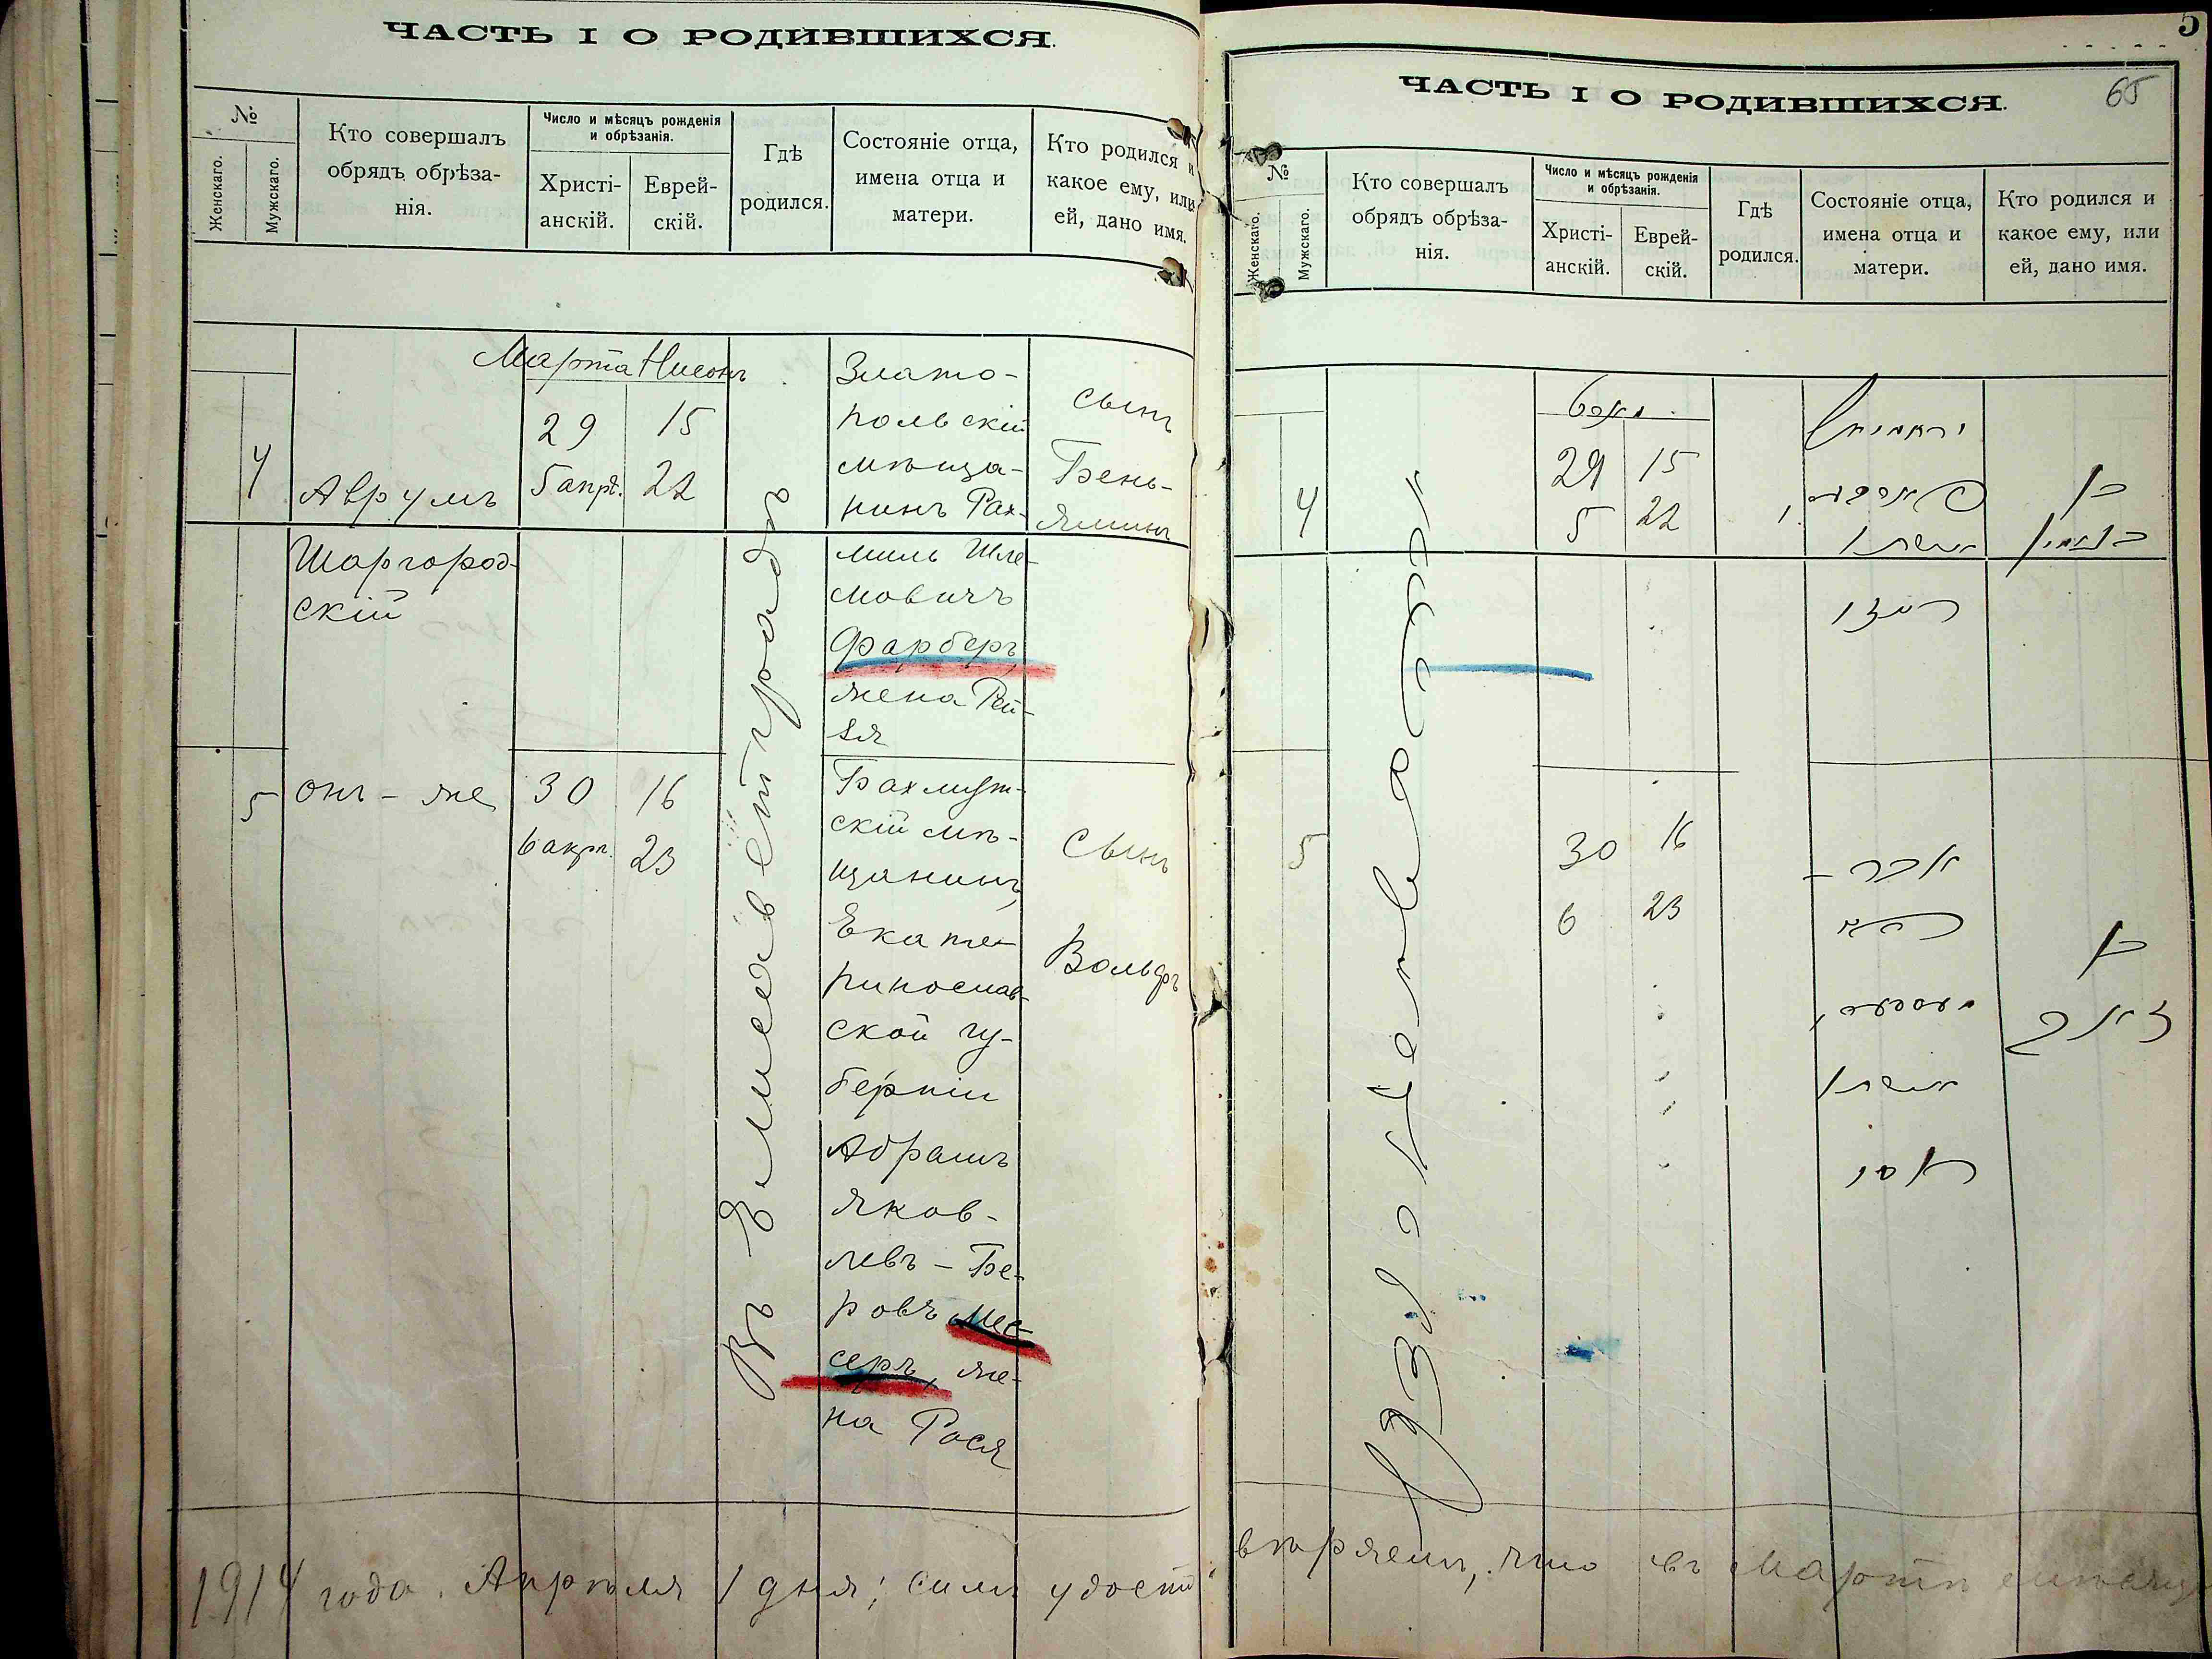 ЧАСТЬ I О РОДИВШИХСЯ.
№
Женскаго.
Мужскаго.
Кто совершалъ
обрядъ обрѣза-
нія.
Число и мѣсяцъ рожденія
и обрѣзанія.
Христі-
анскій.
Еврей-
скій.
Гдѣ
родился.
Состояніе отца,
имена отца и
матери.
Кто родился и
какое ему, или
ей, дано имя.
Марта Нисонъ
4
Аврумъ
Шаргород-
скій
29 15
5 апр. 22
Въ Елисаветградѣ
Злато-
польскій
мѣща-
нинъ Рах-
миль Шле-
мовичъ
Фарберъ,
жена Рей-
зя
сынъ
Бень-
яминъ
5
онъ-же
30 16
6 апр. 23
Бахмут-
скій мѣ-
щанинъ,
Екате-
ринослав-
ской гу-
берніи
Абрамъ
Яков-
левъ-Бе-
ровъ Мес-
серъ, же-
на Рося
сынъ
Вольфъ
1914 года. Апрѣля 1 дня; симъ удосто
5
65
ЧАСТЬ I О РОДИВШИХСЯ.
№
Женскаго.
Мужскаго.
Кто совершалъ
обрядъ обрѣза-
нія.
Число и мѣсяцъ рожденія
и обрѣзанія.
Христі-
анскій.
Еврей-
скій.
Гдѣ
родился.
Состояніе отца,
имена отца и
матери.
Кто родился и
какое ему, или
ей, дано имя.
4
29 15
5 22
בן
בנימין
5
30 16
6 23
בן
וואלף
вѣряемъ, что въ Мартѣ мѣсяцѣ